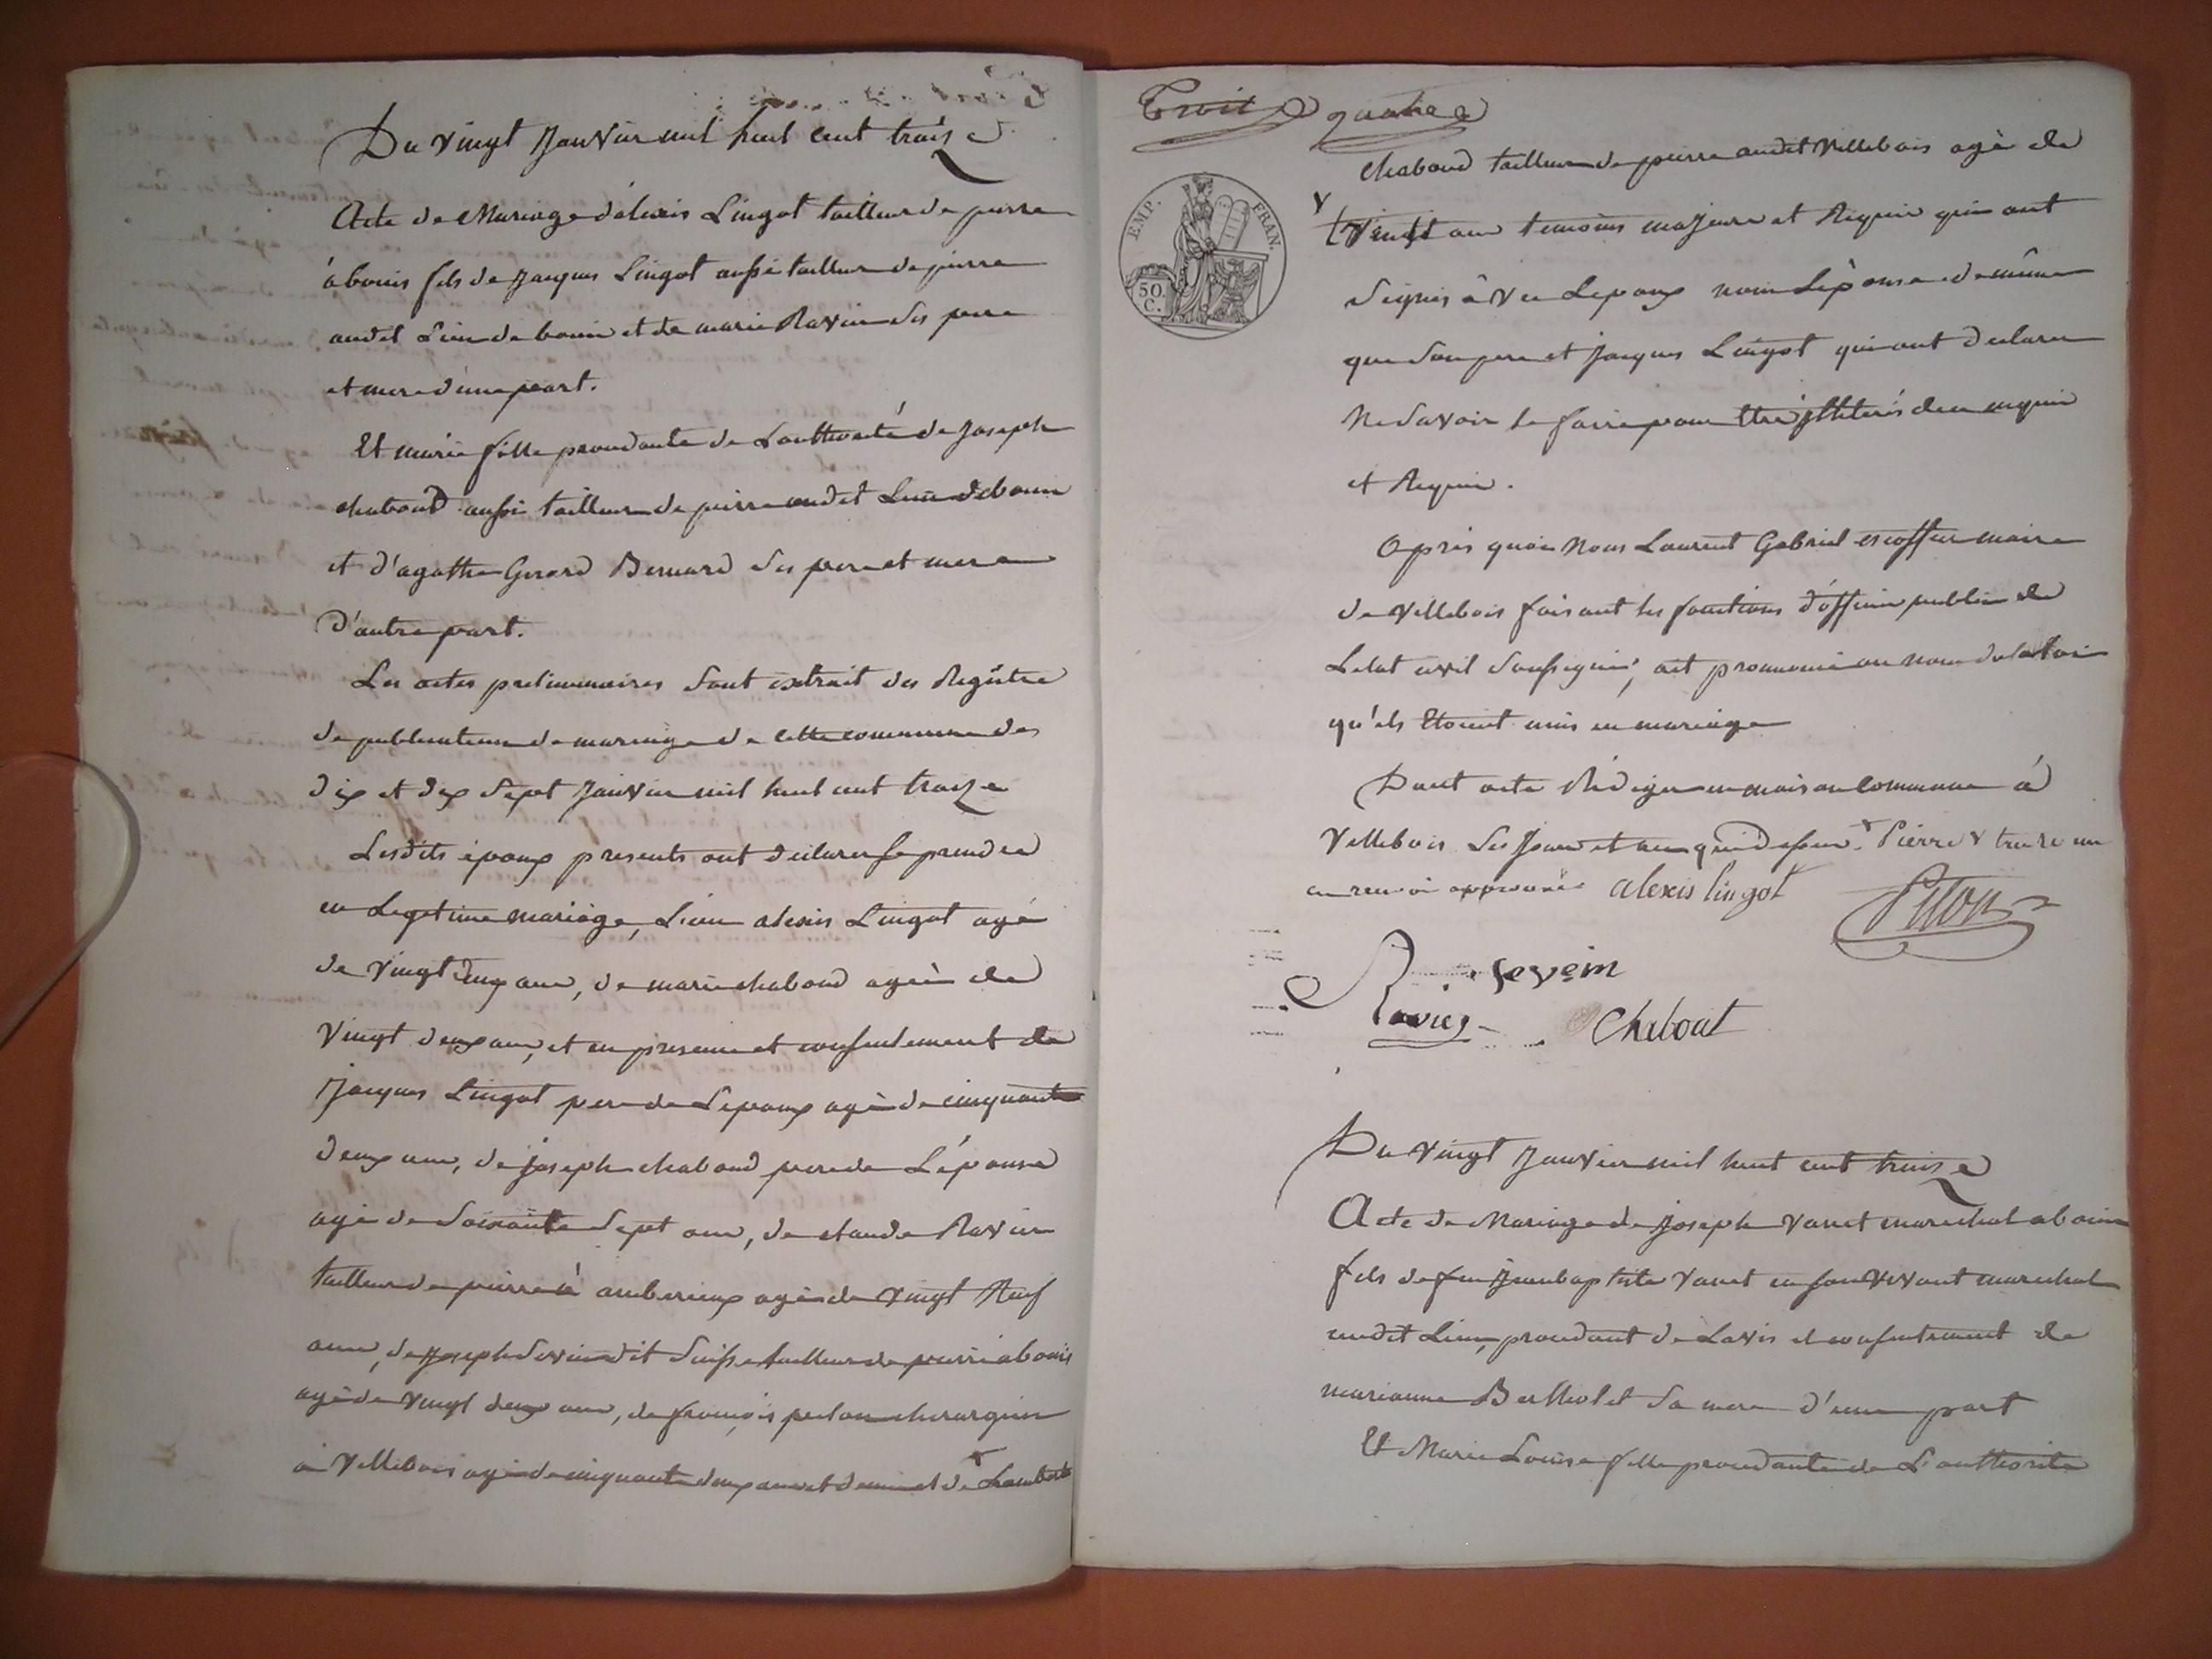 Du vingt Janvier mil huit cent treize
Acte de Mariage d'alexis Lingot tailleur de pierre
à bouis fils de Jacques Lingot aussi tailleur de pierre
audit Lieu de bouis et de marie Ravier ses pere
et mere d'une part.
Et marie fille proudante de Lauthorité de Joseph
chaboud aussi tailleur de pierre audit Lieu de bouis
et d'agathe Gerard Bernard ses pere et mere
D'autre part.
Les actes preliminaires sont extrait des Registre
de publications de mariage de cette commune des
dix et dix sept Janvier mil huit cent treize
Lesdits époux presents ont declarer se prendre
en Legetime mariage, L'un alexis Lingot agé
de vingt cinq ans, de marie chaboud agée de
vingt deux ans, et en presence et consentement de
Jacques Lingot pere de Lepoux agé de cinquante
deux ans, de Joseph chaboud pere de L'épouse
agé de soixante sept ans, de claude Ravier
tailleur de pierre à amberieux agé de vingt Neuf
ans, de Joseph sevin dit suisse tailleur de pierre a bouis
agé de vingt deux ans, de françois pelon chirurgien
à Villebois agé de cinquante deux ans et demi et de Lambert
Trois quatre
EMP. FRAN.
50 C.
chaboud tailleur de pierre audit Villebois agé de
vingt ans temoins majeurs et Requis qui ont
signés avec Lepoux non Lépouse de même
que son pere et Jacques Lingot qui ont declarer
Ne savoir le faire pour être illiterés de ce enquis
et Requis.
Après quoi Nous Laurent Gabriel escoffier maire
de Villebois faisant les fonctions d'officier public de
Letat civil soussigné, ait prononcé au nom de la loi
qu'ils étoient unis en mariage
Dont acte Rédiger en maison commune à
Villebois Les jour et an qui dessus. Pierre & trente un
en renvoi approuvée alexis lingot
Piton
sevein
Ravier
Chaboat
Du vingt Janvier mil huit cent treize
Acte de Mariage de Joseph Varret marechal a bouis
fils de feu Jean baptiste Varret en son vivant marechal
audit Lieu, proudant de Lavis et consentement de
marianne Bertholet sa mere d'une part
Et Marie Louise fille proudante de L'authorité